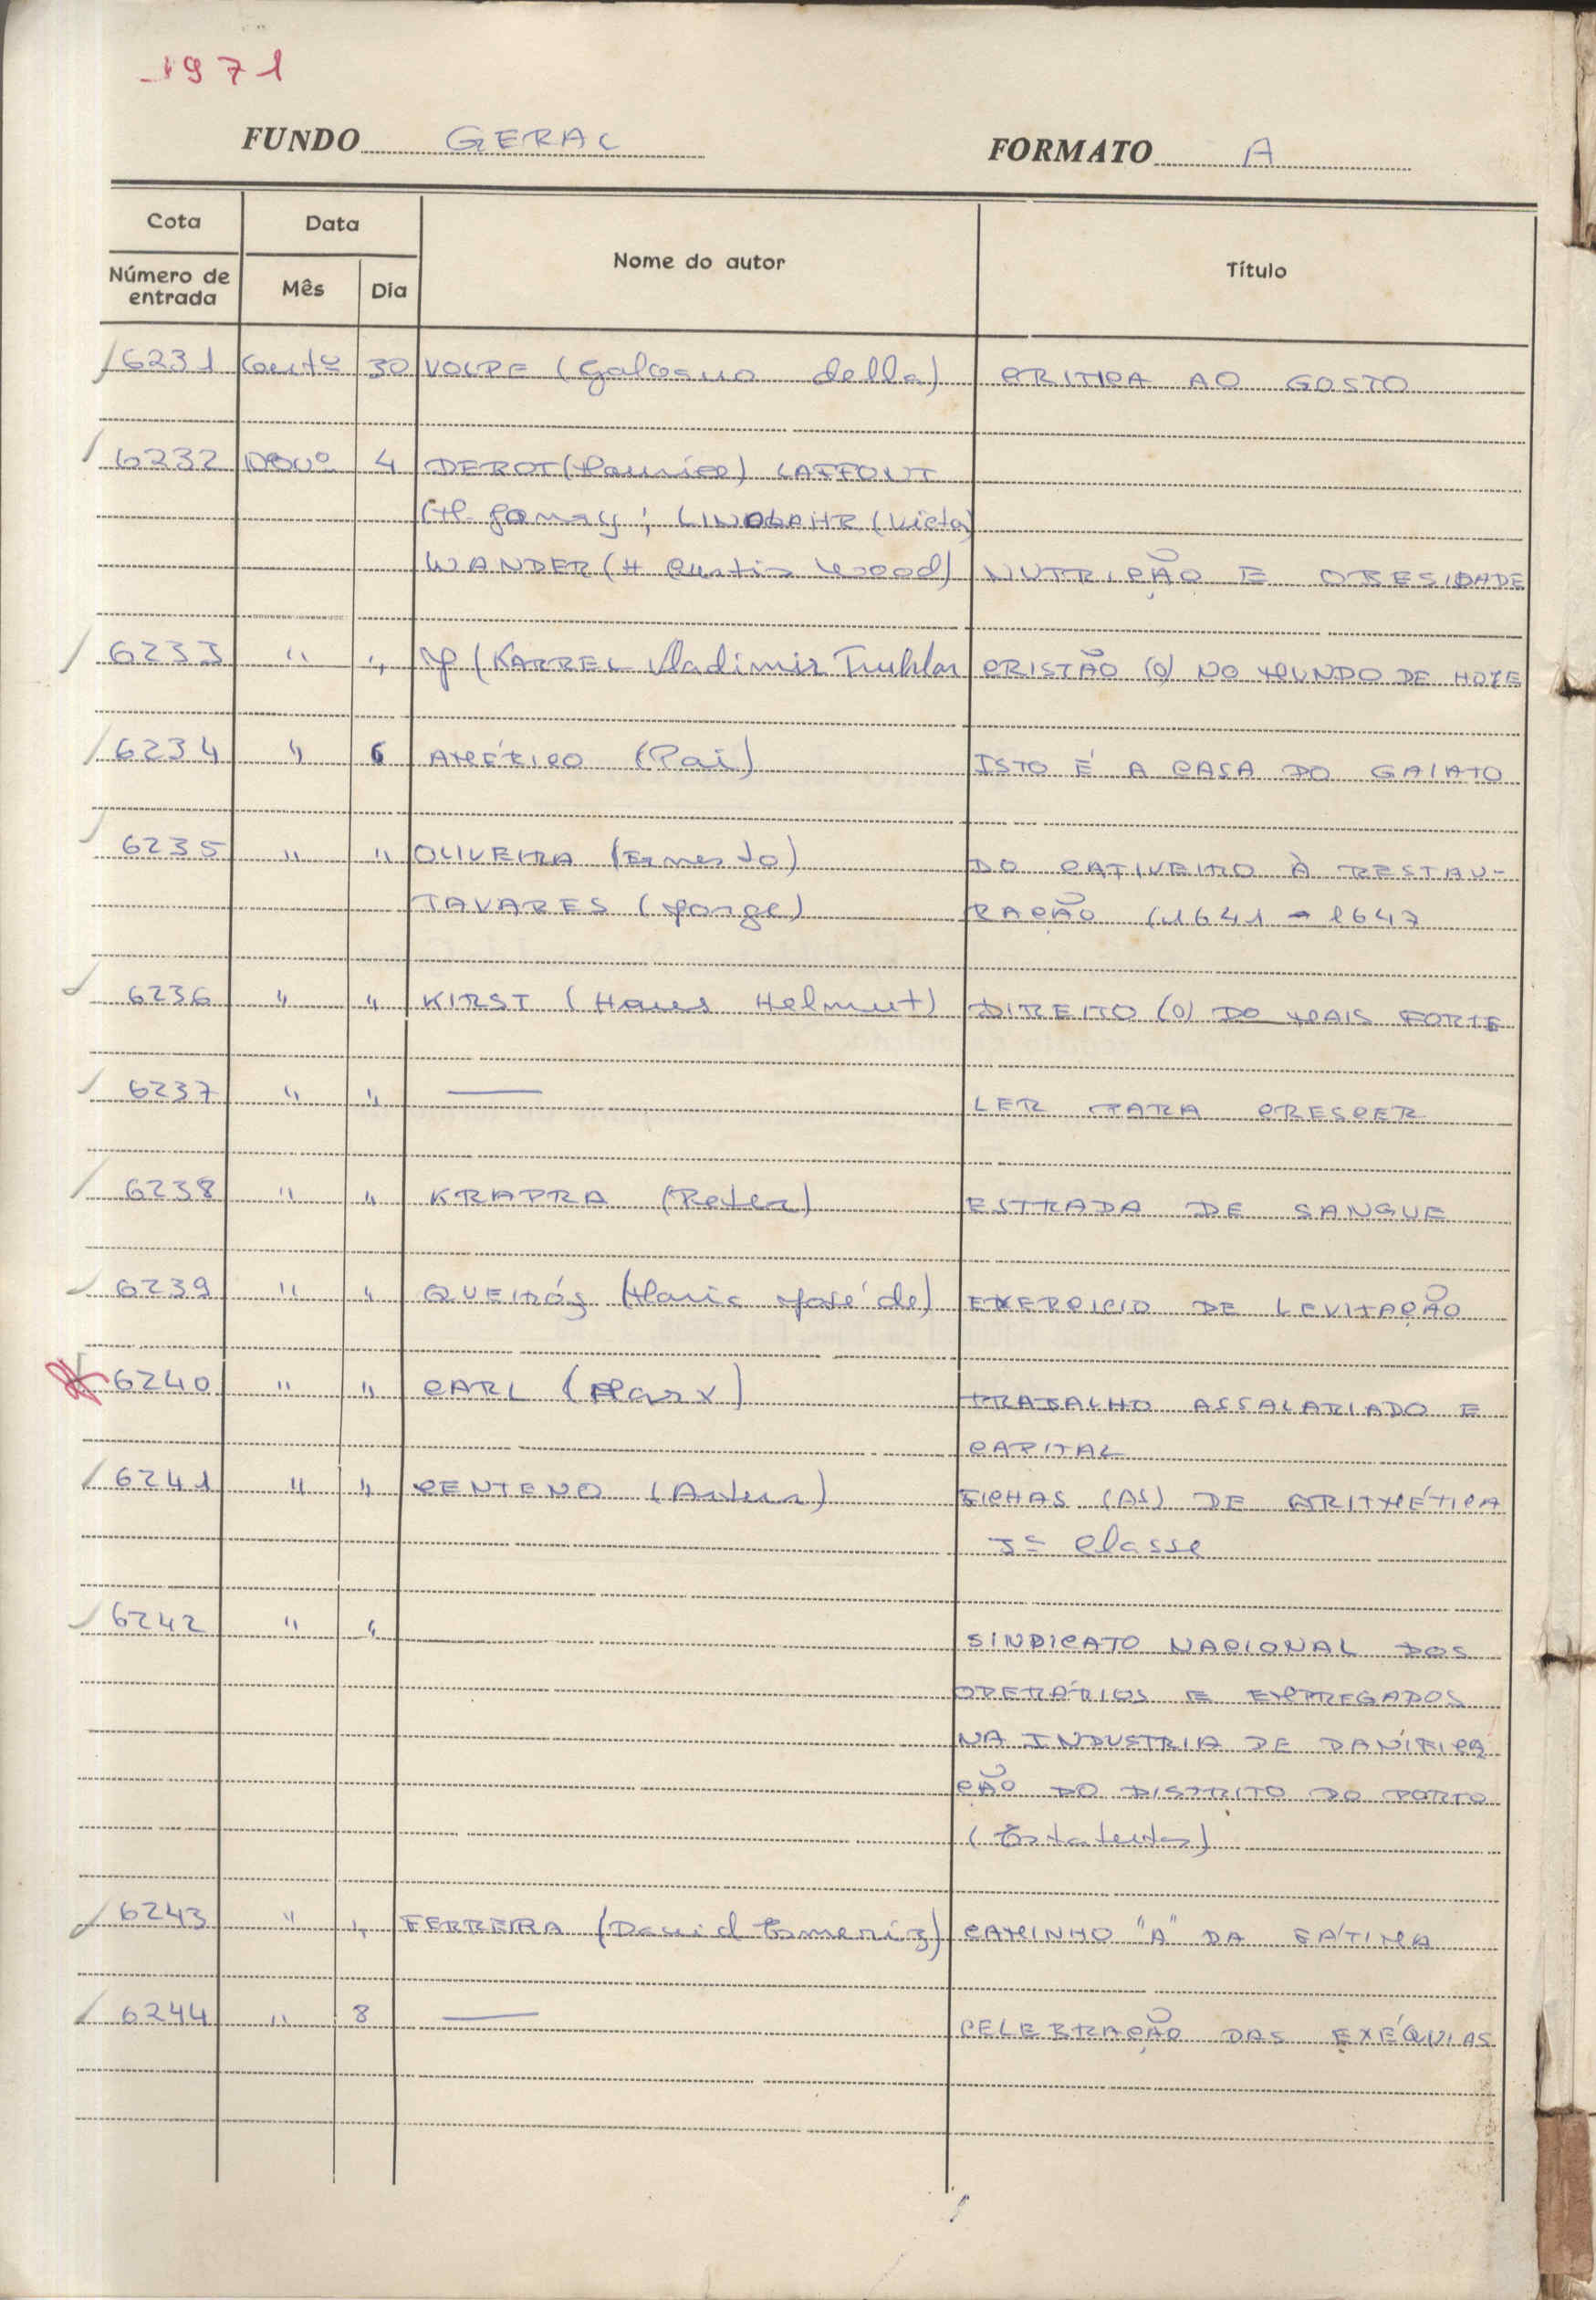 1971
FUNDO GERAL FORMATO A
Cota Data Nome do autor Título
Número de entrada Mês Dia
6231 30 VOLPE (Galvano della) CRITICA AO GOSTO
6232 4 DEROT (Maurice) LAFFONT
(H. ; LINDLAHR (Victor)
WANDER (H Curtis Wood) NUTRIÇÃO E OBESIDADE
6233 " " (KARREL Vladimir Truhlar CRISTÃO (O) NO MUNDO DE HOJE
6234 " 6 AMÉRICO (Pai) ISTO É A CASA DO GAIATO
6235 " " OLIVEIRA (Ernesto) DO CATIVEIRO À RESTAU-
TAVARES (Jorge) RAÇÃO (1641 - 1647
6236 " " KIRST (Hans Helmut) DIREITO (O) DO MAIS FORTE
6237 " " — LER PARA CRESCER
6238 " " KRAPRA (Peter) ESTRADA DE SANGUE
6239 " " QUEIRÓS (Maria José de) EXERCICIO DE LEVITAÇÃO
6240 " " CARL (Marx) TRABALHO ASSALARIADO E
CAPITAL
6241 " " CENTENO (Artur) FICHAS (AS) DE ARITMÉTICA
3ª Classe
6242 " " — SINDICATO NACIONAL DOS
OPERÁRIOS E EMPREGADOS
NA INDUSTRIA DE PANÍFICA
ÇÃO DO DISTRITO DO PORTO
(Estatutos)
6243 " " FERREIRA (David Esmeriz) CAMINHO "A" DA FÁTIMA
6244 " 8 — CELEBRAÇÃO DAS EXÉQUIAS